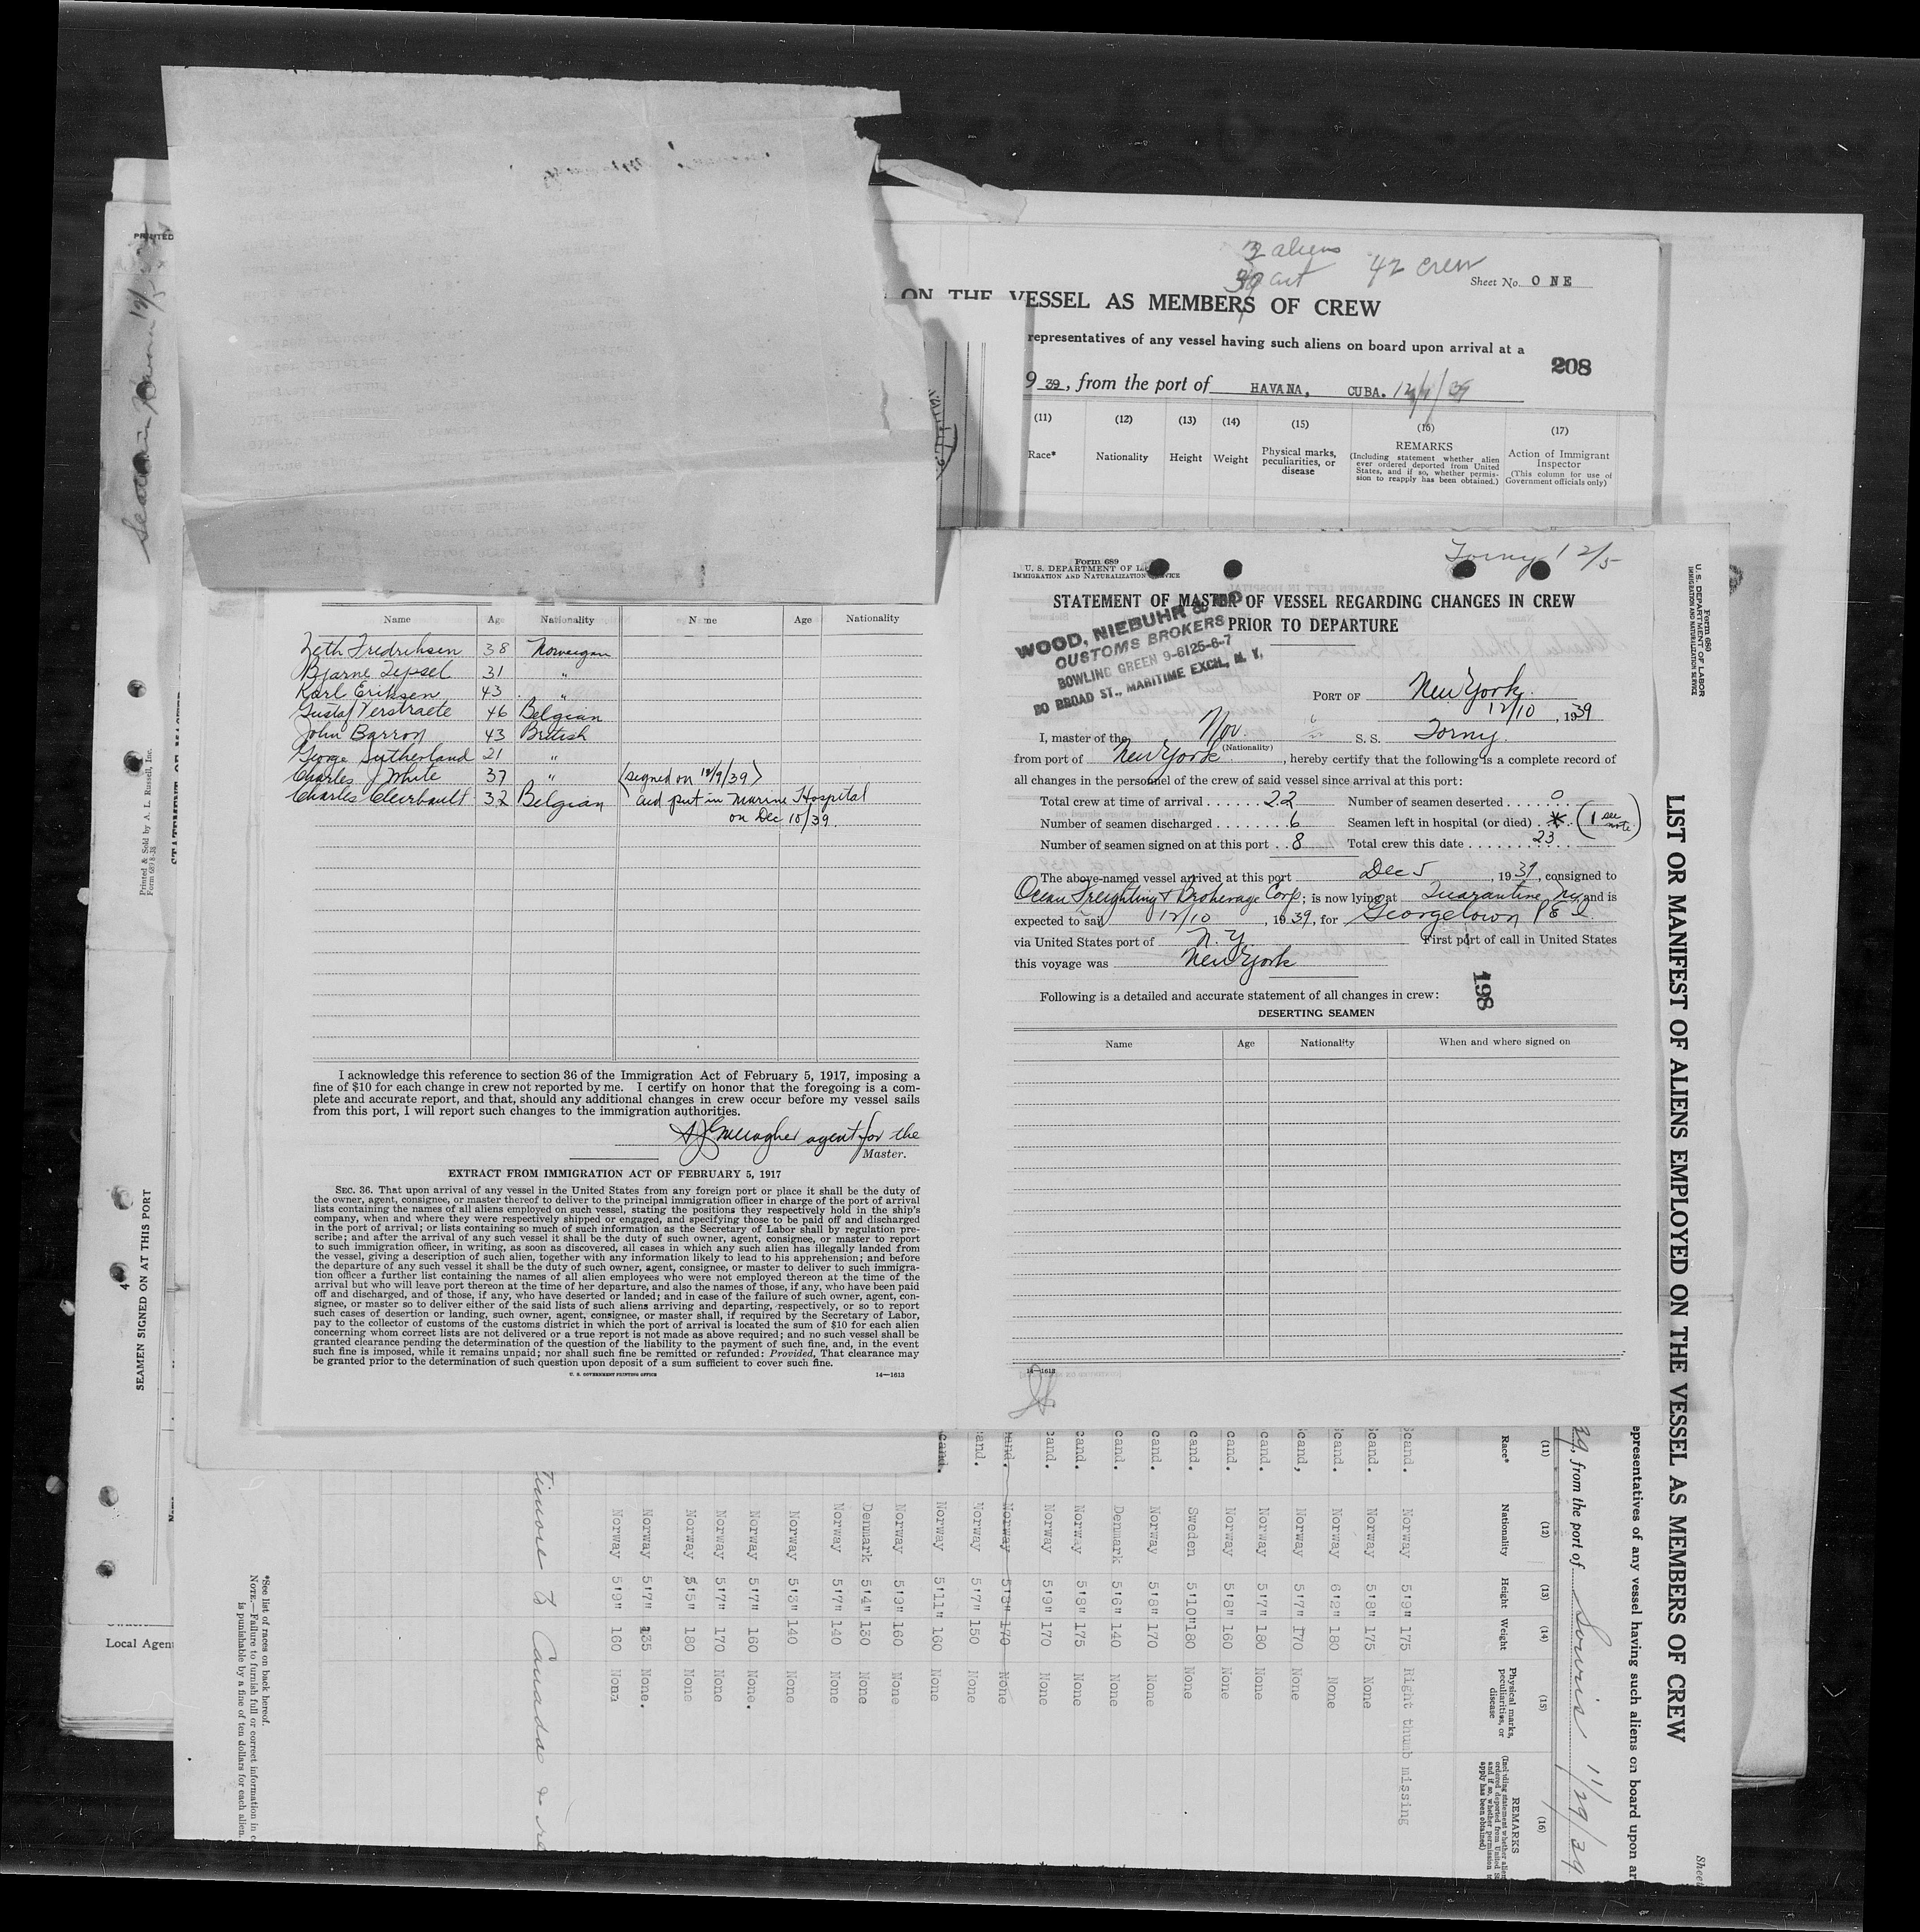 3 aliens
39 cit
42 crew
Sheet No. ONE
ON THE VESSEL AS MEMBERS OF CREW
representatives of any vessel having such aliens on board upon arrival at a
208
9 39, from the port of HAVANA, CUBA.
(11) (12) (13) (14) (15) (16) (17)
Race* Nationality Height Weight Physical marks, peculiarities, or disease
REMARKS
(Including statement whether alien ever ordered deported from United States, and if so, whether permission to reapply has been obtained.)
Action of Immigrant Inspector
(This column for use of Government officials only)
PRINTED
Printed & Sold by A. L. Russell, Inc.
SEAMEN SIGNED ON AT THIS PORT
4
Local Agen
Name Age Nationality Name Age Nationality
Zeth Fredriksen 38 Norwegian
Bjarne Tepsel 31 "
Karl Eriksen 43 "
Gustaf Verstraete 46 Belgian
John Barron 43 British
George Sutherland 21 "
Charles J White 37 " (signed on 12/9/39)
Charles Cleirbault 32 Belgian and put in Marine Hospital
on Dec 10/39.
I acknowledge this reference to section 36 of the Immigration Act of February 5, 1917, imposing a
fine of $10 for each change in crew not reported by me. I certify on honor that the foregoing is a com-
plete and accurate report, and that, should any additional changes in crew occur before my vessel sails
from this port, I will report such changes to the immigration authorities.
agent for the
Master.
EXTRACT FROM IMMIGRATION ACT OF FEBRUARY 5, 1917
SEC. 36. That upon arrival of any vessel in the United States from any foreign port or place it shall be the duty of
the owner, agent, consignee, or master thereof to deliver to the principal immigration officer in charge of the port of arrival
lists containing the names of all aliens employed on such vessel, stating the positions they respectively hold in the ship's
company, when and where they were respectively shipped or engaged, and specifying those to be paid off and discharged
in the port of arrival; or lists containing so much of such information as the Secretary of Labor shall by regulation pre-
scribe; and after the arrival of any such vessel it shall be the duty of such owner, agent, consignee, or master to report
to such immigration officer, in writing, as soon as discovered, all cases in which any such alien has illegally landed from
the vessel, giving a description of such alien, together with any information likely to lead to his apprehension; and before
the departure of any such vessel it shall be the duty of such owner, agent, consignee, or master to deliver to such immigra-
tion officer a further list containing the names of all alien employees who were not employed thereon at the time of the
arrival but who will leave port thereon at the time of her departure, and also the names of those, if any, who have been paid
off and discharged, and of those, if any, who have deserted or landed; and in case of the failure of such owner, agent, con-
signee, or master so to deliver either of the said lists of such aliens arriving and departing, respectively, or so to report
such cases of desertion or landing, such owner, agent, consignee, or master shall, if required by the Secretary of Labor,
pay to the collector of customs of the customs district in which the port of arrival is located the sum of $10 for each alien
concerning whom correct lists are not delivered or a true report is not made as above required; and no such vessel shall be
granted clearance pending the determination of the question of the liability to the payment of such fine, and, in the event
such fine is imposed, while it remains unpaid; nor shall such fine be remitted or refunded: Provided, That clearance may
be granted prior to the determination of such question upon deposit of a sum sufficient to cover such fine.
U. S. GOVERNMENT PRINTING OFFICE 14—1613
Form 689
U. S. DEPARTMENT OF
IMMIGRATION AND NATURALIZATION SERVICE
Torny 12/5
STATEMENT OF MASTER OF VESSEL REGARDING CHANGES IN CREW
PRIOR TO DEPARTURE
WOOD, NIEBUHR & CO
CUSTOMS BROKERS
BOWLING GREEN 9-6125-6-7
80 BROAD ST., MARITIME EXCH., N. Y.
PORT OF New York.
12/10, 1939
I, master of the Nov S. S. Torny.
(Nationality)
from port of New York, hereby certify that the following is a complete record of
all changes in the personnel of the crew of said vessel since arrival at this port:
Total crew at time of arrival 22 Number of seamen deserted 0
Number of seamen discharged 6 Seamen left in hospital (or died) * (1 see note)
Number of seamen signed on at this port 8 Total crew this date 23
The above-named vessel arrived at this port Dec 5, 1939, consigned to
Ocean Freighting & Brokerage Corp; is now lying at Quarantine NY, and is
expected to sail 12/10, 1939, for Georgetown P E I
via United States port of N. Y. First port of call in United States
this voyage was New York
Following is a detailed and accurate statement of all changes in crew:
198
DESERTING SEAMEN
Name Age Nationality When and where signed on
14—1613
Form 689
U. S. DEPARTMENT OF LABOR
IMMIGRATION AND NATURALIZATION SERVICE
LIST OR MANIFEST OF ALIENS EMPLOYED ON THE VESSEL AS MEMBERS OF CREW
epresentatives of any vessel having such aliens on board upon ar
39, from the port of Souris 11/29/39
(11) (12) (13) (14) (15) (16)
Race* Nationality Height Weight Physical marks, peculiarities, or disease REMARKS
cand. Norway 5'9" 175 Right thumb missing
cand. Norway 5'8" 175 None
cand. Norway 6'2" 180 None
cand, Norway 5'7" 170 None
cand. Norway 5'7" 180 None
cand. Norway 5'8" 160 None
cand. Sweden 5'10" 180 None
cand. Norway 5'8" 170 None
cand. Denmark 5'6" 140 None
cand. Norway 5'8" 175 None
cand. Norway 5'9" 170 None
cand. Norway 5'8" 170 None
and. Norway 5'7" 150 None
cand. Norway 5'11" 160 None
Norway 5'9" 160 None
Denmark 5'4" 130 None
Norway 5'7" 140 None
Norway 5'3" 140 None
Norway 5'7" 160 None.
Norway 5'7" 170 None
Norway 5'5" 180 None
Norway 5'7" 135 None.
Norway 5'9" 160 None
to Canada &
*See list of races on back hereof.
NOTE.—Failure to furnish full or correct information in
is punishable by a fine of ten dollars for each alien.